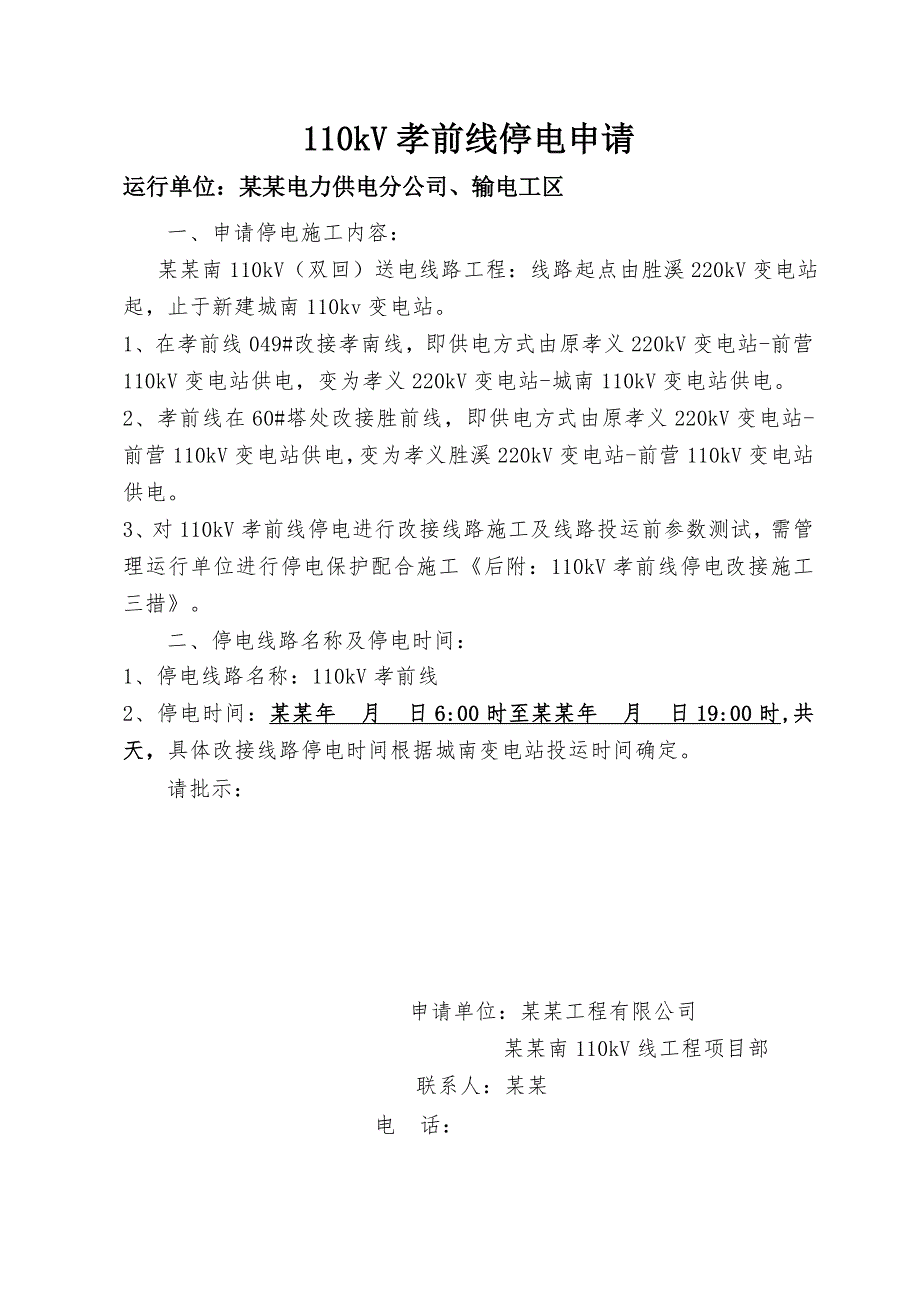 110kV孝前线停电申请
运行单位：某某电力供电分公司、输电工区
一、申请停电施工内容：
某某南110kV（双回）送电线路工程：线路起点由胜溪220kV变电站
起，止于新建城南110kv变电站。
1、在孝前线049#改接孝南线，即供电方式由原孝义220kV变电站-前营
110kV变电站供电，变为孝义220kV变电站-城南110kV变电站供电。
2、孝前线在60#塔处改接胜前线，即供电方式由原孝义220kV变电站-
前营110kV变电站供电,变为孝义胜溪220kV变电站-前营110kV变电站
供电。
3、对110kV孝前线停电进行改接线路施工及线路投运前参数测试，需管
理运行单位进行停电保护配合施工《后附：110kV孝前线停电改接施工
三措》。
二、停电线路名称及停电时间：
1、停电线路名称：110kV孝前线
2、停电时间：某某年 月 日6:00时至某某年 月 日19:00时,共
天，具体改接线路停电时间根据城南变电站投运时间确定。
请批示：
申请单位：某某工程有限公司
某某南110kV线工程项目部
联系人：某某
电 话：